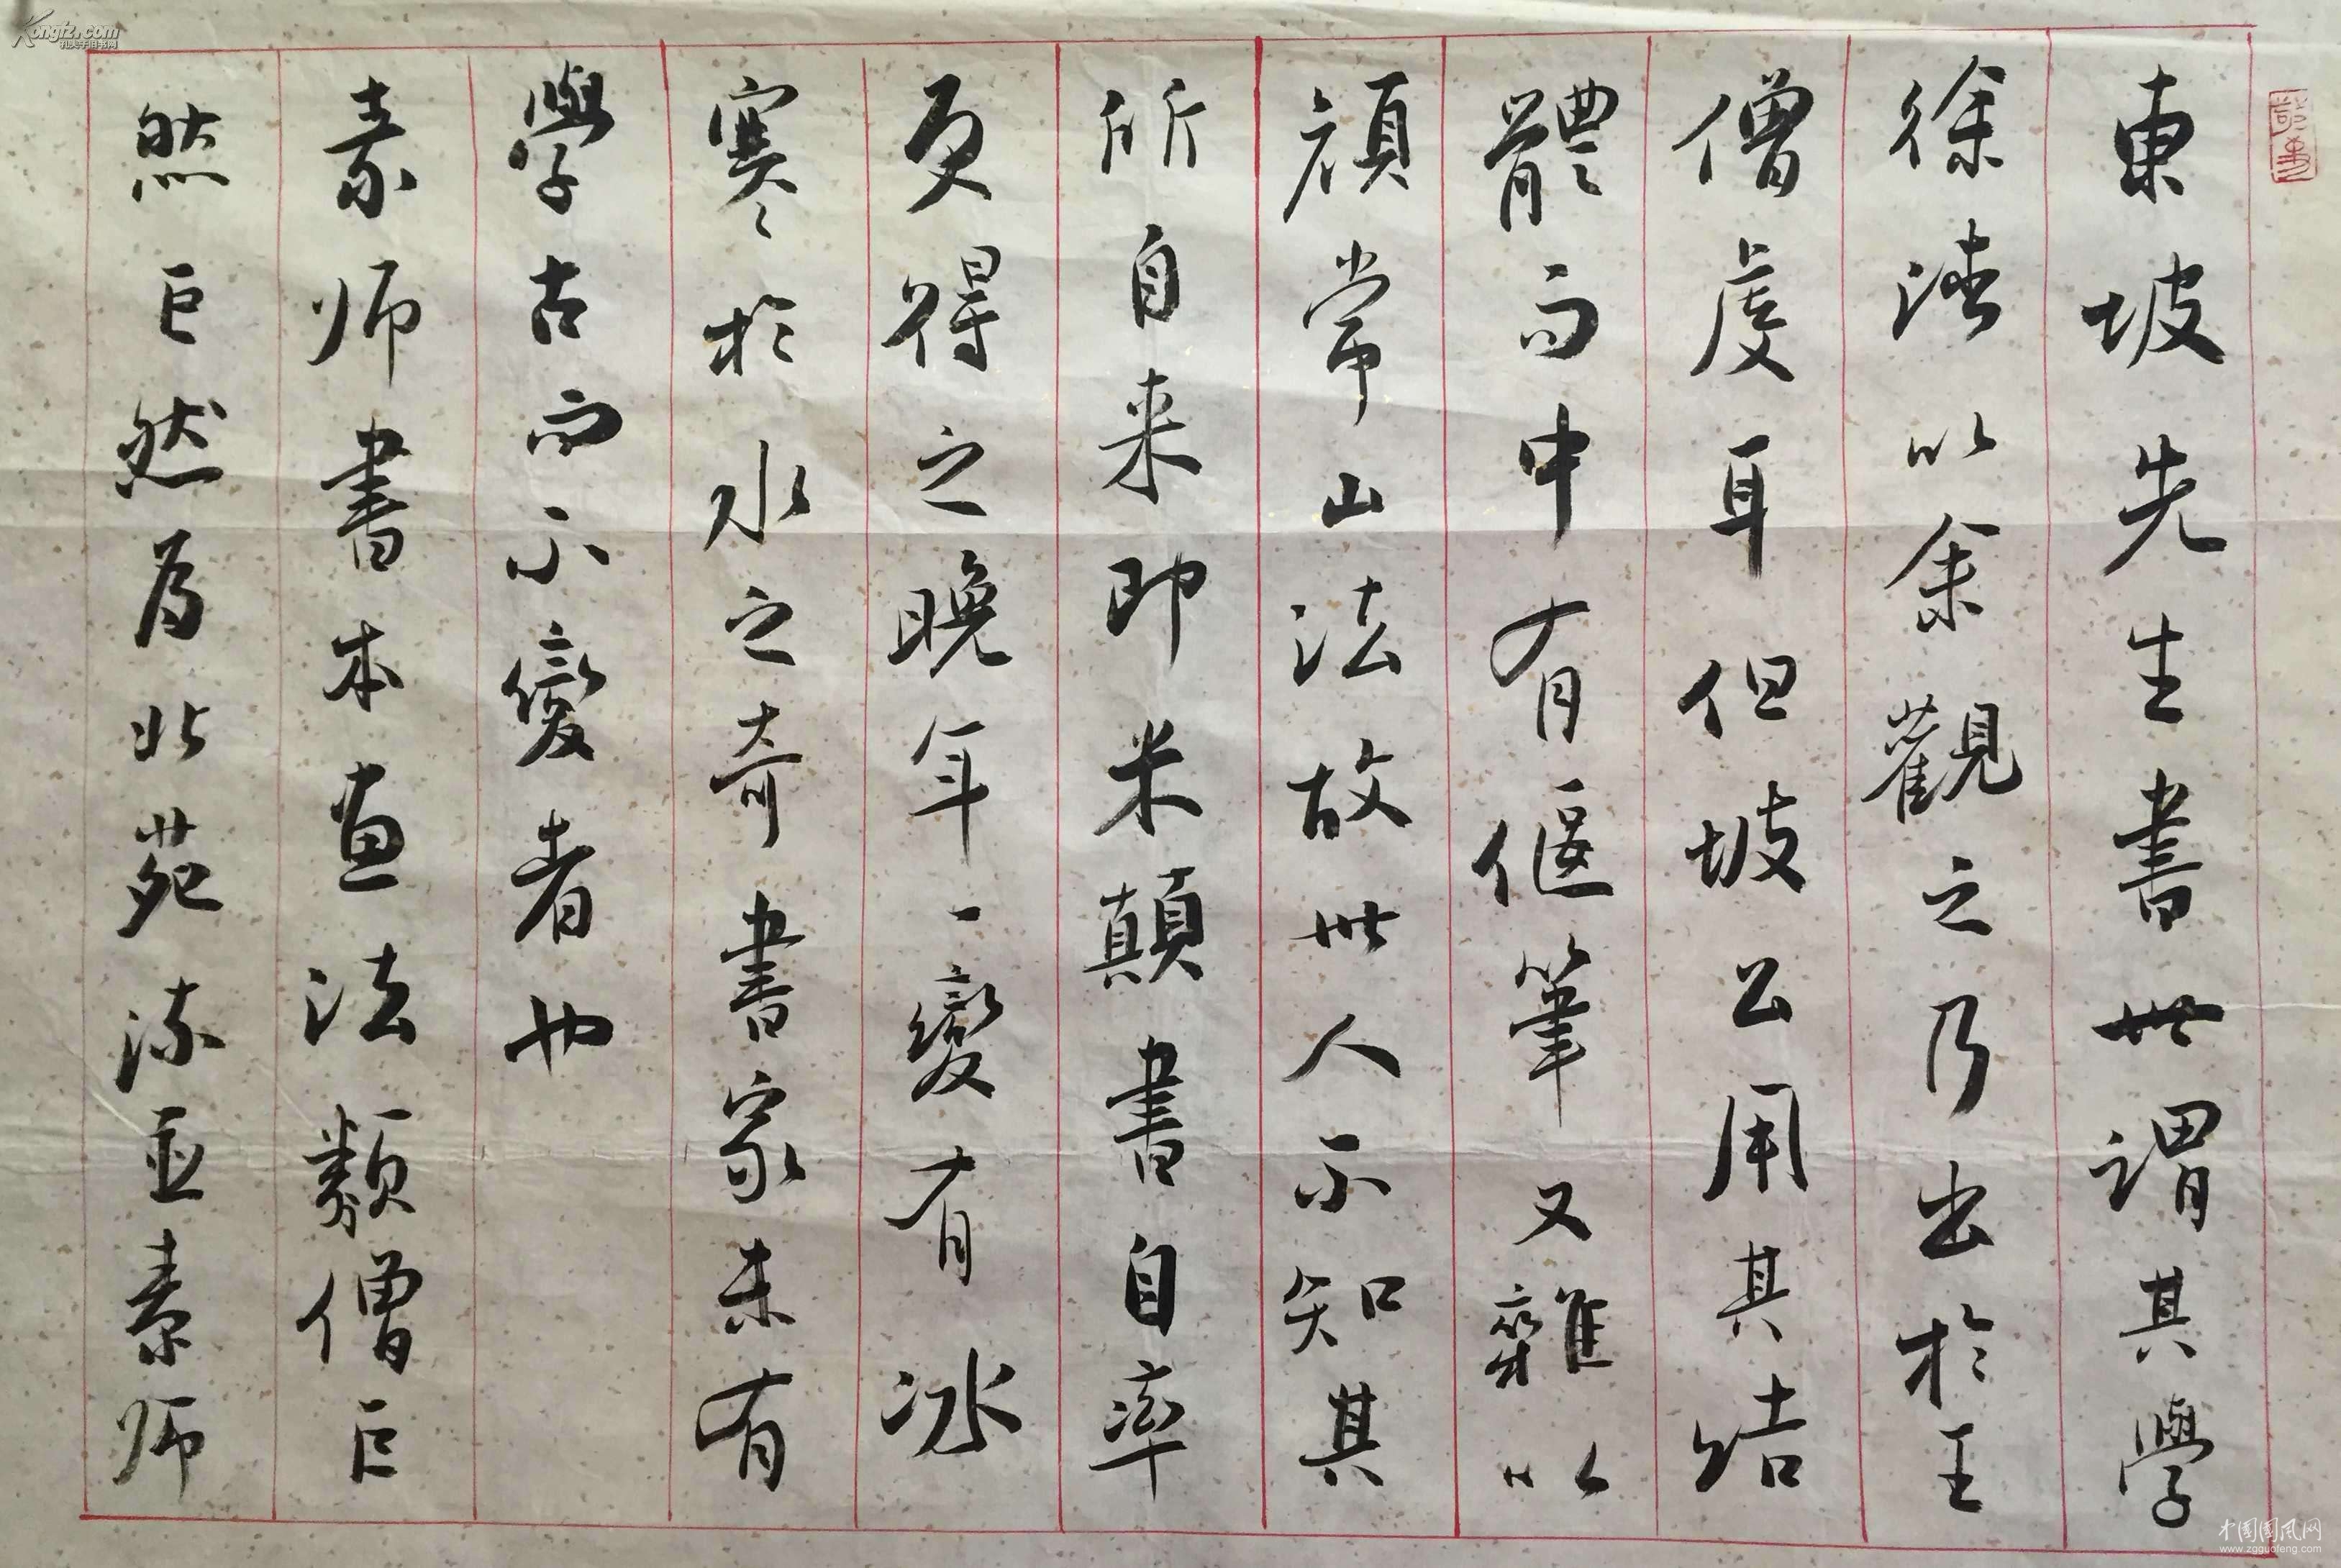 東坡先生書世謂其學
徐浩以余觀之乃出於王
僧虔耳但坡公用其结
體而中有偃筆又雜以
顔常山法故世人不知其
所自来即米顛書自率
更得之晚年一變有冰
寒於水之奇書家未有
學古而不變者也
素师書本画法類僧巨
然巨然为北苑流亚素师
Kongfz.com
孔夫子旧书网
中國國風网
www.zgguofeng.com